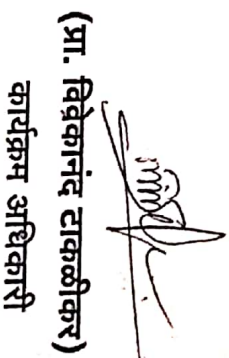 (प्रा. विवेकानंद टाकळीकर)
कार्यक्रम अधिकारी